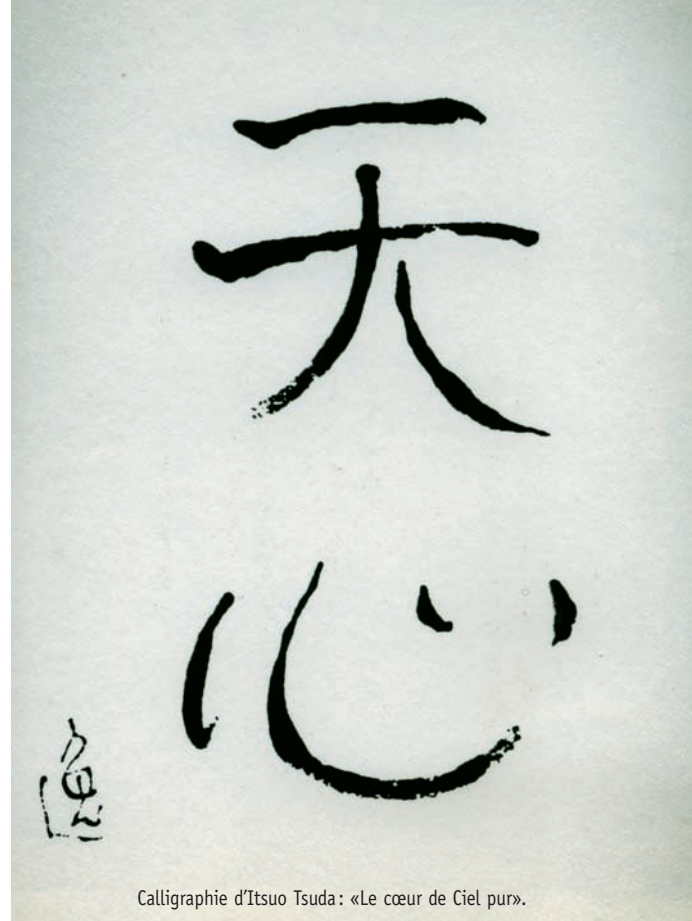 天心
逸
Calligraphie d'Itsuo Tsuda: «Le cœur de Ciel pur».